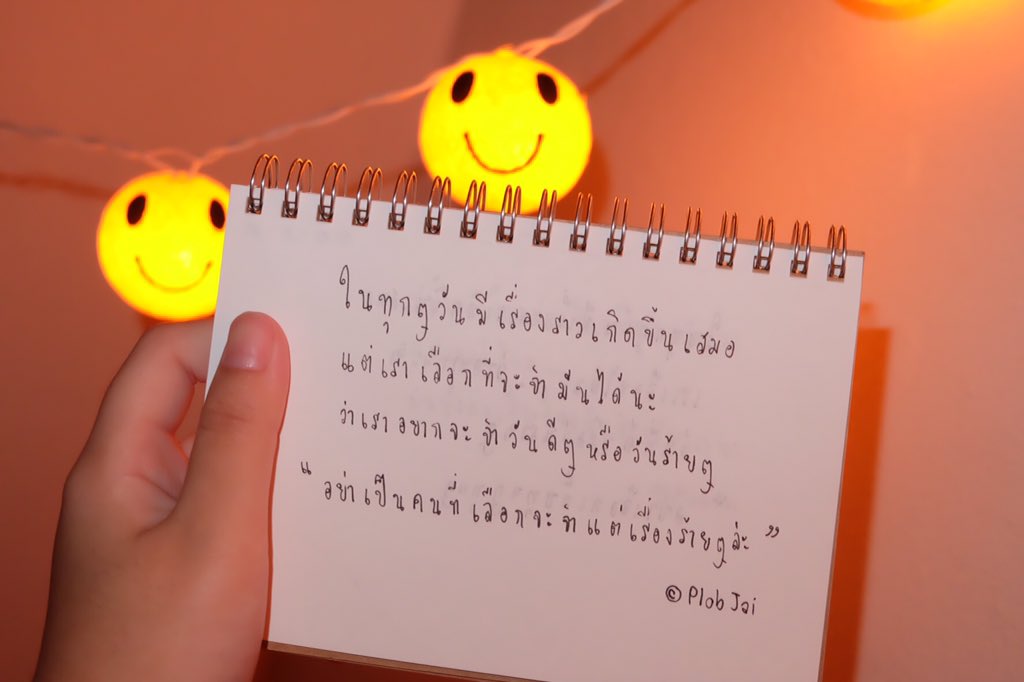 ในทุกๆวันมีเรื่องราวเกิดขึ้นเสมอ
แต่เราเลือกที่จะจำมันได้นะ
ว่าเราอยากจะจำวันดีๆหรือวันร้ายๆ
"อย่าเป็นคนที่เลือกจะจำแต่เรื่องร้ายๆล่ะ"
© Plob Jai